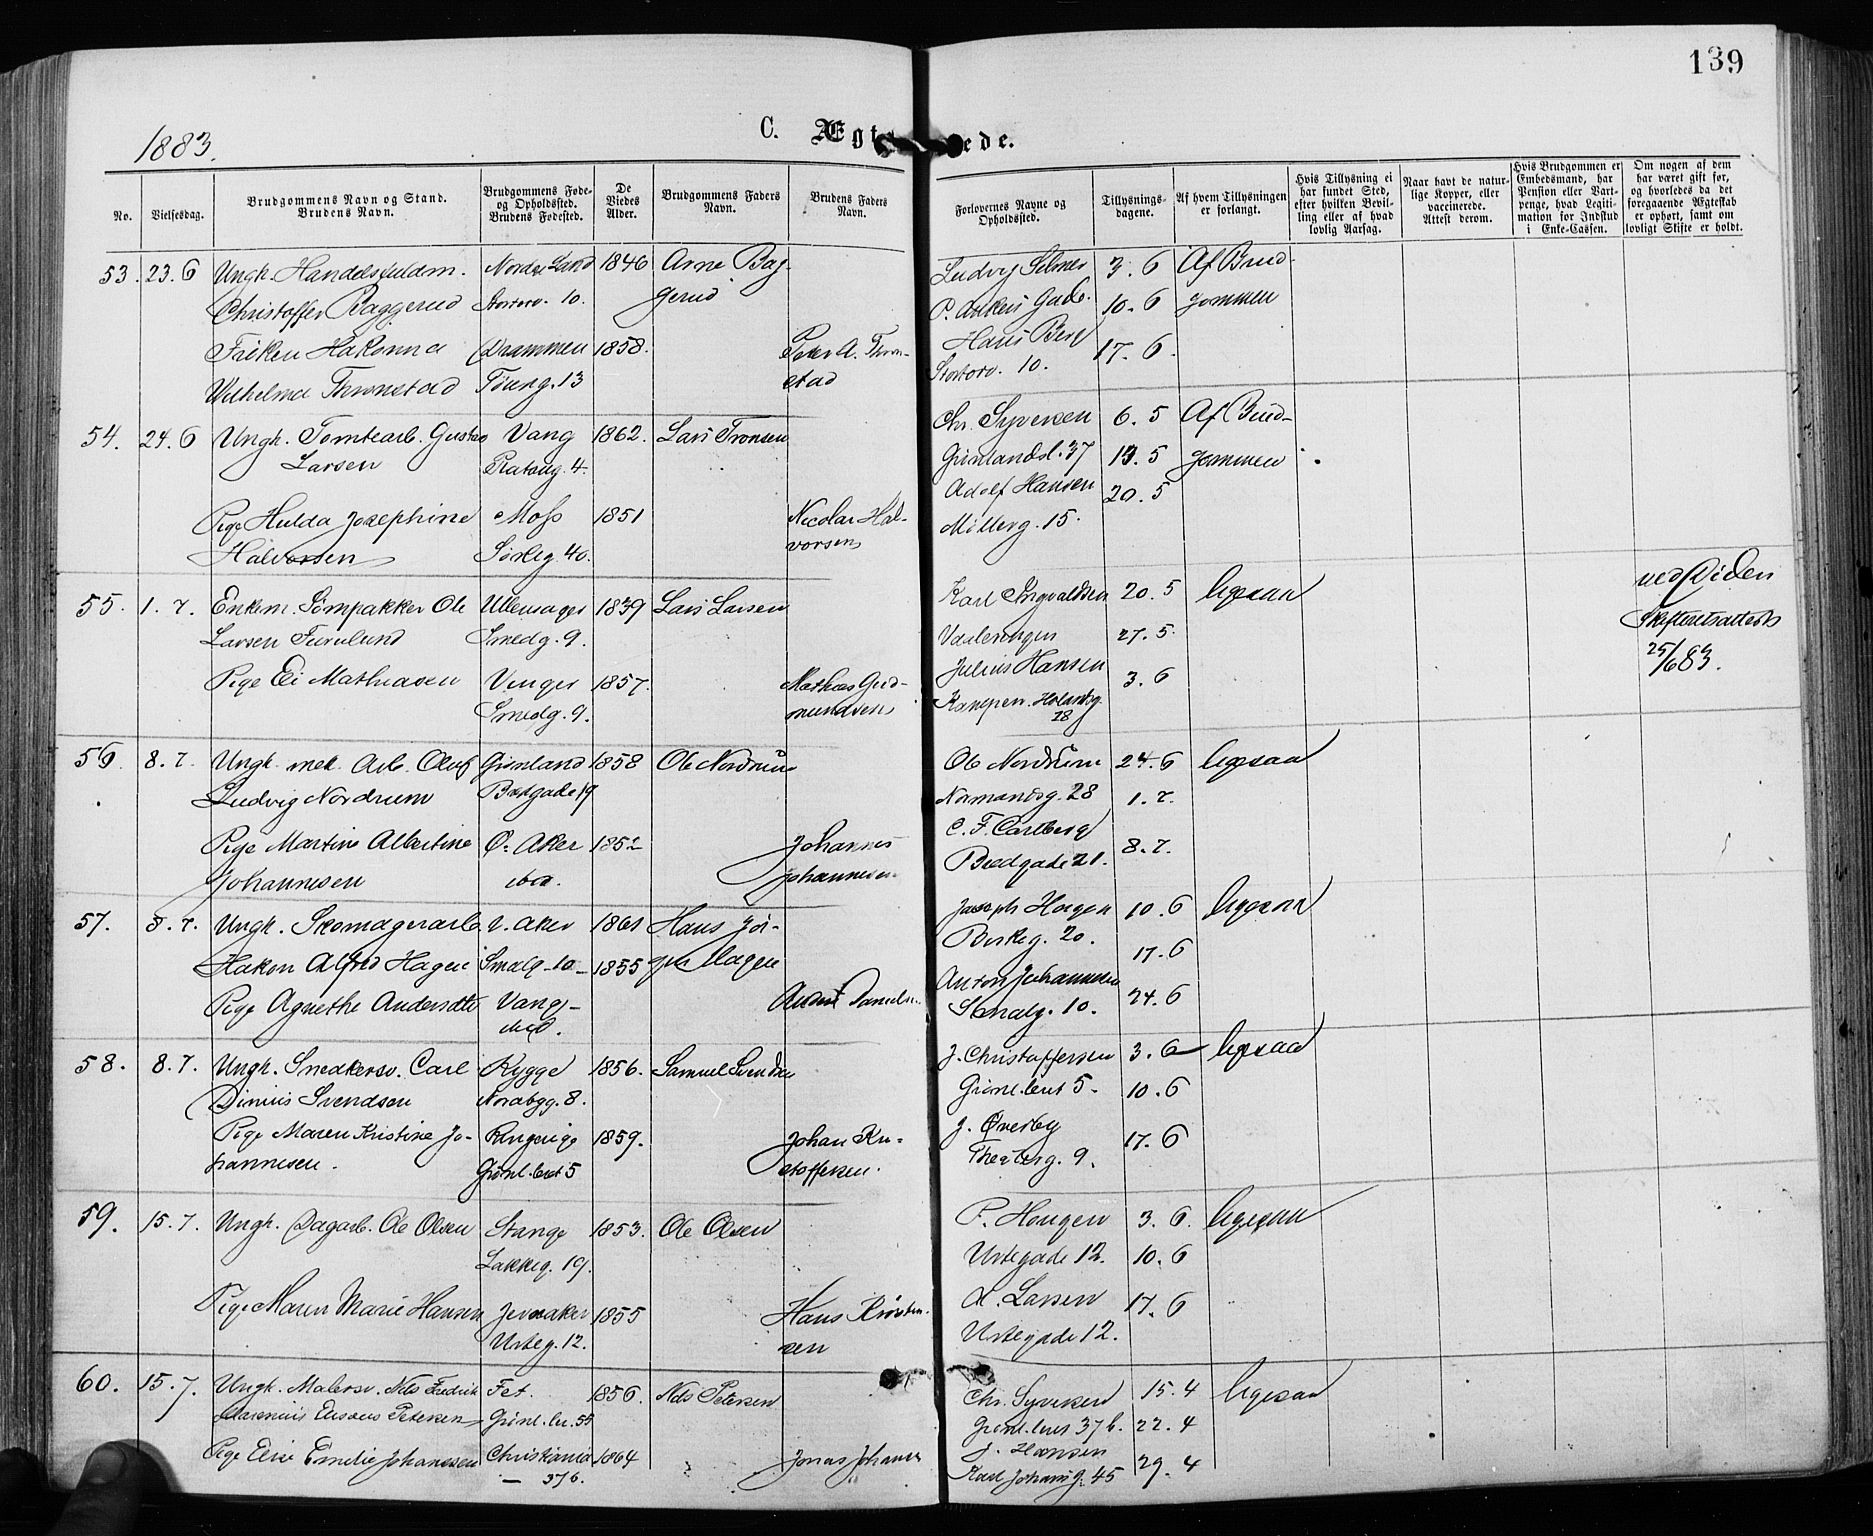 139
1883.
C. Ægt ede.
No.
Vielsesdag.
Brudgommens Navn og Stand.
Brudens Navn.
Brudgommens Føde-
og Opholdssted.
Brudens Fødested.
De
Viedes
Alder.
Brudgommens Faders
Navn.
Brudens Faders
Navn.
Forlovernes Navne og
Opholdssted.
Tillysnings-
dagene.
Af hvem Tillysningen
er forlangt.
Hvis Tillysning ei
har fundet Sted,
efter hvilken Bevil-
ling eller af hvad
lovlig Aarsag.
Naar havt de natur-
lige Kopper, eller
vaccinerede.
Attest derom.
Hvis Brudgommen er
Embedsmand, har
Pension eller Vart-
penge, hvad Legiti-
mation for Indskud
i Enke-Cassen.
Om nogen af dem
har været gift før,
og hvorledes da det
foregaaende Ægteskab
er ophørt, samt om
lovligt Skifte er holdt.
53. 23. 6 Ungk. Handelsfuldm. Nordre Land 1846 Arne Bag-
Christoffer Baggerud Stortorv. 10. gerud
Frøken Hakonna Drammen 1858. Peter A. Thron-
Wilhelma Thronstad 13 stad
Ludvig 3. 6 Af Brud-
P. Ankers Gade. 10. 6 gommen
Hans Berg 17. 6.
Stortorv. 10.
54. 24. 6 Ungk. Tomtearb. Gustav Vang 1862. Lars Tronsen
Larsen Platoug. 4.
Pige Hulda Josephine Moss 1851 Nicolai Hal-
Halvorsen Sørlig. 40. vorsen
Chr. Syversen 6. 5 Af Brud-
Grønlandsl. 37 13. 5 gommen
Adolf Hansen 20. 5
Møllerg. 15.
55. 1. 7. Enkem. Tømpakker Ole Ullensager 1839 Lars Larsen
Larsen Furulund Smedg. 9.
Pige Eli Mathiasen Vinger 1857. Mathias Gud-
Smedg. 9. mundsen
Karl Ingvaldsen 20. 5 ligesaa
Vaaleringen 27. 5.
Julius Hansen 3. 6
Kampen. Holandsg.
18
ved Døden
Skifteretsattest
25/6 83.
56. 8. 7. Ungk. mek. Arb. Oluf Grønland 1858 Ole Nordrum
Ludvig Nordrum Bredgade 19
Pige Martine Albertine Ø. Aker 1852 Johannes
Johannesen ibid. Johannesen
Ole Nordrum 24. 6 ligesaa
Normandsg. 28 1. 7.
C. F. Carlberg 8. 7.
Bredgade 21.
57. 8. 7. Ungk. Skomagerarb. V. Aker 1861 Hans Jør-
Hakon Alfred Hagen Smalg. 10 1855 gen Hagen
Pige Agnethe Andersdtr Vang Anders Daniels.
ibid.
Joseph Hagen 10. 6 ligesaa
Borkeg. 20. 17. 6
Anton Johannesen 24. 6
Smalg. 10.
58. 8. 7. Ungk. Snedkersv. Carl Rygge 1856. Samuel Svendsen
Dinius Svendsen Norabyg. 8.
Pige Maren Kristine Jo- Ringerige 1859. Johan Kri-
hannesen. Grønl. leret 5 stoffersen.
J. Christoffersen 3. 6 ligesaa
Grønl. leret 5 10. 6
J. Øverby 17. 6
Theaterg. 9.
59. 15. 7. Ungk. Dagarb. Ole Olsen Stange 1853. Ole Olsen
Lakkeg. 19.
Pige Maren Marie Hansen Jevnaker 1855 Hans Kristen-
Urteg. 12. sen
P. Haugen 3. 6. ligesaa
Urtegade 12. 10. 6
A. Larsen 17. 6
Urtegade 12.
60. 15. 7. Ungk. Malersv. Nils Fredrik Fet. 1856. Nils Petersen
Petersen Grønl. ler. 55
Pige Emilie Johannesen Christiania 1864 Jonas Johannes
— 37 b.
Chr. Syversen 15. 4 ligesaa
Grønl. leret 37 b. 22. 4
J. Hansen 29. 4
Karl Johans g. 45